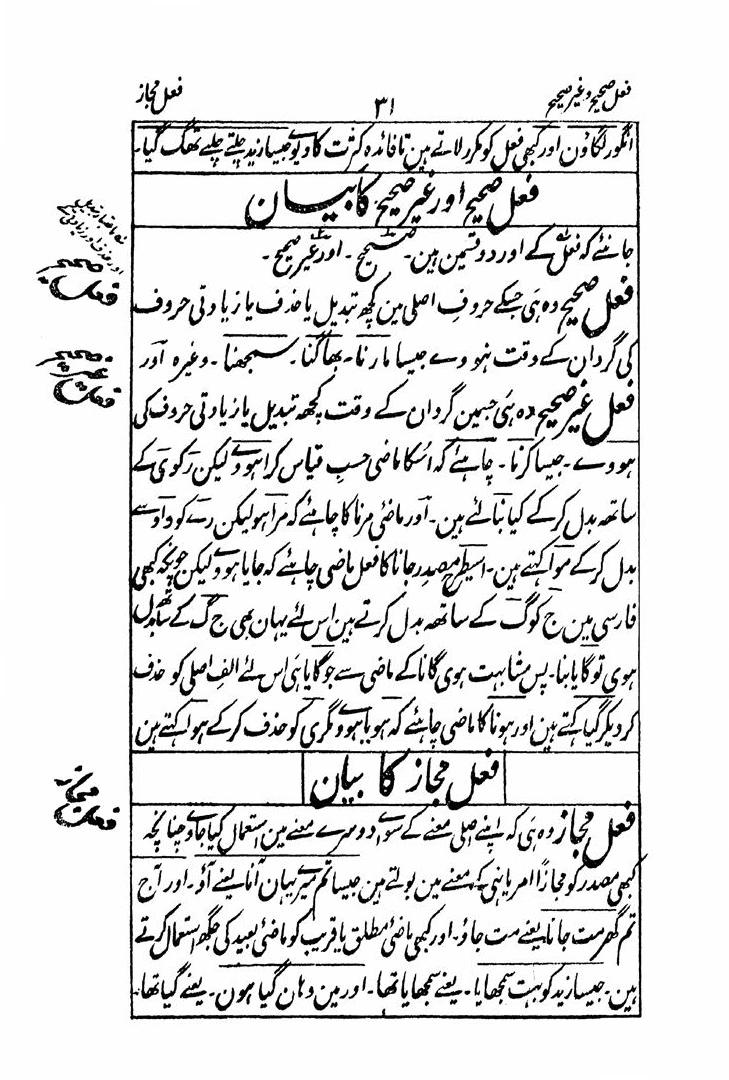 فعل صحیح و غیر صحیح
۳۱
فعل مجاز
انگور لگاؤن اور کبھی فعل کو مکرر لاتے ہین تا فائدہ کثرت کا دیوے جیسا زید چلتے چلتے تھک گیا۔
فعل صحیح اور غیر صحیح کا بیان
جانئے کہ فعل کے اور دو قسمین ہین۔ صحیح۔ اور غیر صحیح۔
فعل صحیح وہ ہی جسکے حروفِ اصلی مین کچھ تبدیل یا حذف یا زیادتی حروف
کی گردان کے وقت نہووے جیسا مارنا۔ بھاگنا۔ سمجھنا۔ وغیرہ اور
فعل غیر صحیح وہ ہی جسمین گردان کے وقت کچھ تبدیل یا زیادتی حروف کی
ہووے۔ جیسا کرنا۔ چاہئے کہ اُسکا ماضی حسبِ قیاس کرا ہووے لیکن رَ کو یَ کے
ساتھ بدل کر کے کیا بنائے ہین۔ اَور ماضی مرنا کا چاہئے کہ مرا ہو لیکن رے کو داو سے
بدل کر کے موا کہتے ہین۔ اسیطرح مصدر جانا کا فعل ماضی چاہئے کہ جایا ہووے لیکن چونکہ کبھی
فارسی مین ج کو گ کے ساتھ بدل کرتے ہین اس لئے یہان بھی ج گ کے ساتھ بدل
ہوی تو گایا بنا۔ پس مشابہت ہوی گانا کے ماضی سے جو گایا ہی اس لئے الف اصلی کو حذف
کر دیکر گیا کہتے ہین اور ہونا کا ماضی چاہئے کہ ہویا ہووے مگر ی کو حذف کر کے ہوا کہتے ہین
فعل مجاز کا بیان
فعل مجاز وہ ہی کہ اپنے اصلی معنے کے سواے دوسرے معنے مین استعمال کیا جاوے چنانچہ
کبھی مصدر کو مجازاً امر یا نہی کے معنے مین بولتے ہین جیسا تم میرے یہان آنا یعنے آؤ۔ اور آج
تم گھر مت جانا یعنے مت جاؤ۔ اور کبھی ماضی مطلق یا قریب کو ماضی بعید کی جگھ استعمال کرتے
ہین۔ جیسا زید کو بہت سمجھایا۔ یعنے سمجھایا تھا۔ اور مین وہان گیا ہون۔ یعنے گیا تھا۔
فعل صحیح
فعل غیر صحیح
فعل مجاز